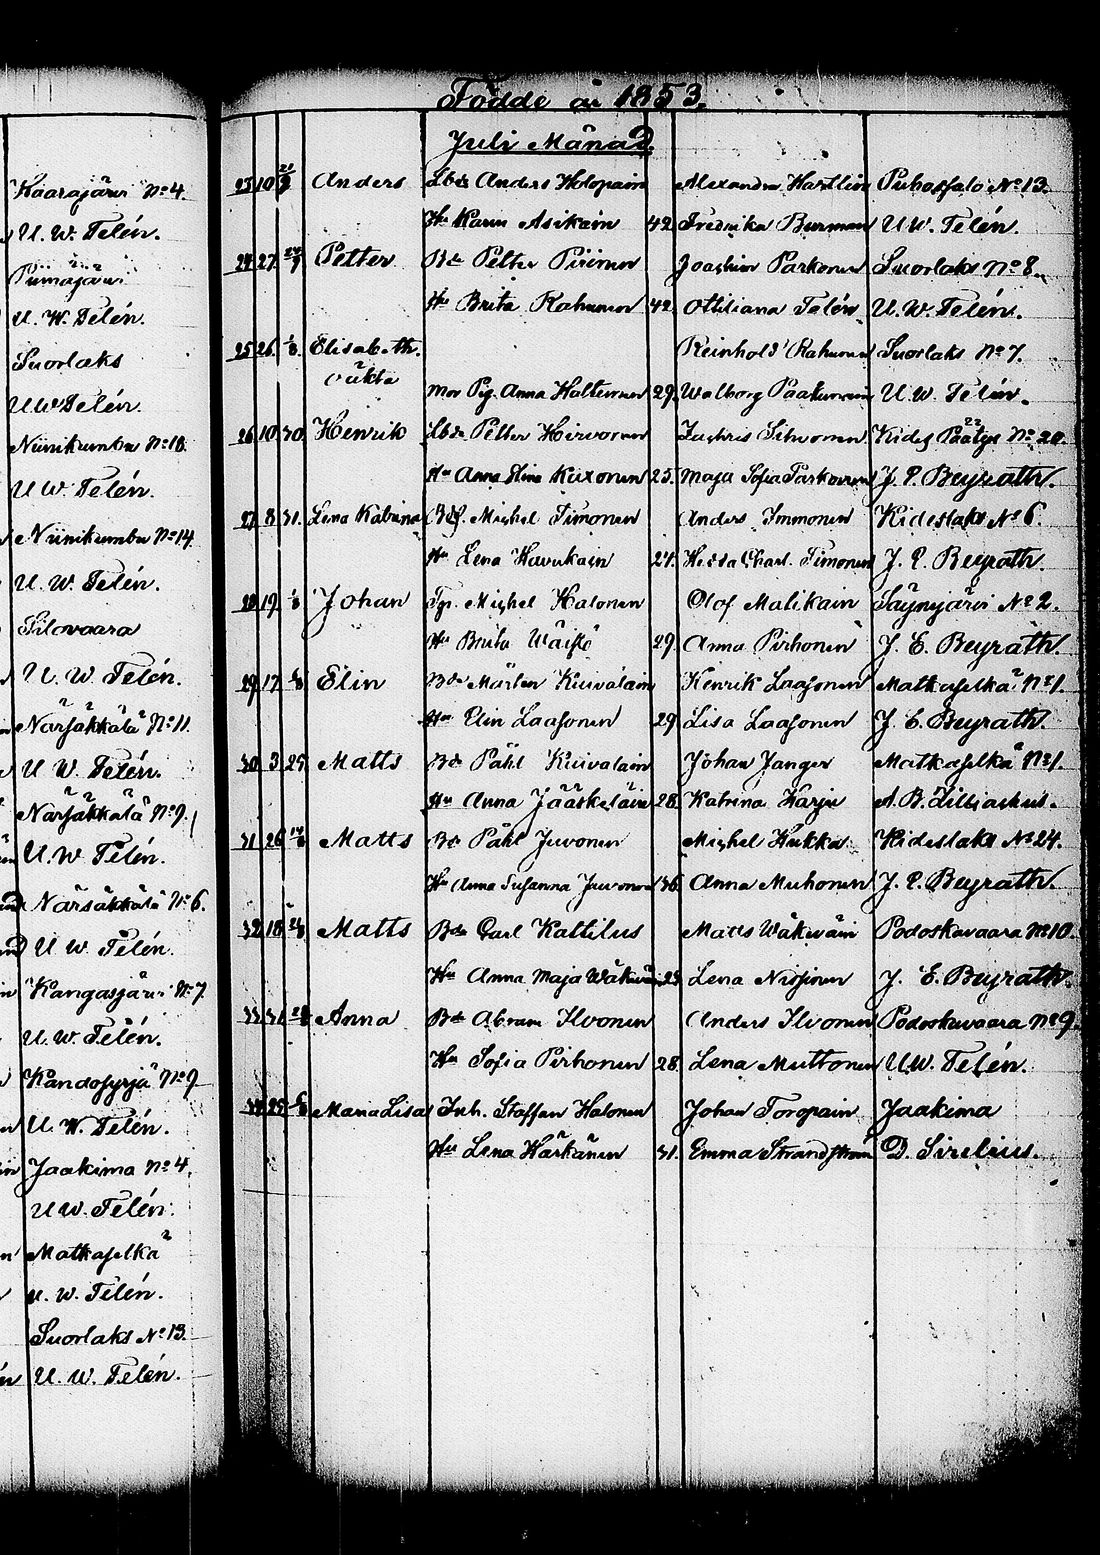 Födde år 1853.
Juli Månad.
Kaarajärvi No 4.
U. W. Telén.
Piimäjärvi
U. W. Telén.
Suorlaks
U W Telén.
Niinikumbu No 18.
U W. Telén.
Niinikumbu No 14.
U. W. Telén.
Silovaara
U. W. Telén.
Närsäkkälä No 11.
U W. Telén.
Närsäkkälä No 9.
U. W Telén.
Närsäkkälä No 6.
U W. Telén.
Kangasjärvi No 7.
U. W. Telén.
No 9
U. W. Telén.
Jaakima No 4.
U W. Telén.
Matkaselkä
U. W. Telén.
Suorlaks No 13.
U. W. Telén.
23 10 Anders Lbde Anders Holopain Alexander Hartlin Puhossalo No 13.
Hu Karin Asikain 42 Fredrika Burman U W. Telén.
24 27 Petter Bde Petter Piirinen Joachim Parkonen Suorlaks No 8.
Hu Brita Rahunen 42 Ottiliana Telén U. W. Telén.
25 26 1/8 Elisabeth. Reinhold Rahunen Suorlaks No 7.
oäkta Mor Pig. Anna Haltunen 29. Walborg U. W Telén.
26 10 30 Henrik Lbde Petter Hirvonen Zachris Kides Päätye No 20.
Hu Anna Stina 25. Maja Sofia Parkonen J. E. Beyrath.
27 8 31. Lena Katrina Michel Timonen Anders Immonen Kideslaks No 6.
Hu Lena Havukain 27. Hedda Charl. Timonen J. E. Beyrath.
28 19 1/8 Johan Michel Halonen Olof Malikain Säynyjärvi No 2.
Hu Brita Wäistö 29. Anna Pirhonen J. E. Beyrath.
29 17 Elin Bde Mårten Kuivalain Henrik Laasonen Matkaselkä No 1.
Hu Elin Laasonen 29. Lisa Laasonen J. E. Beyrath.
30 3 25 Matts Bde Påhl Kuivalain Johan Janger Matkaselkä No 1.
Hu Anna Jääskeläin 28. Katrina Karju A. B. Zilliachus.
31 26 Matts Bde Påhl Juvonen Michel Hukka Kideslaks No 24.
Hu Anna Susanna Juvonen 36. Anna Muhonen J. E. Beyrath.
32 18 Matts Bde Carl Kattilus Matts Wäkeväin Podoskavaara No 10.
Hu Anna Maja Wäkeväin 23. Lena Nissinen J. E. Beyrath.
33 31 Anna Bde Abram Ilvonen Anders Ilvonen Podoskavaara No 9.
Hu Sofia Pirhonen 28. Lena Muttonen U W. Telén.
34 Maria Lisa Inh. Staffan Halonen Johan Toropain Jaakima
Hu Lena Härkänen 31. Emma Strandström D. Sirelius.